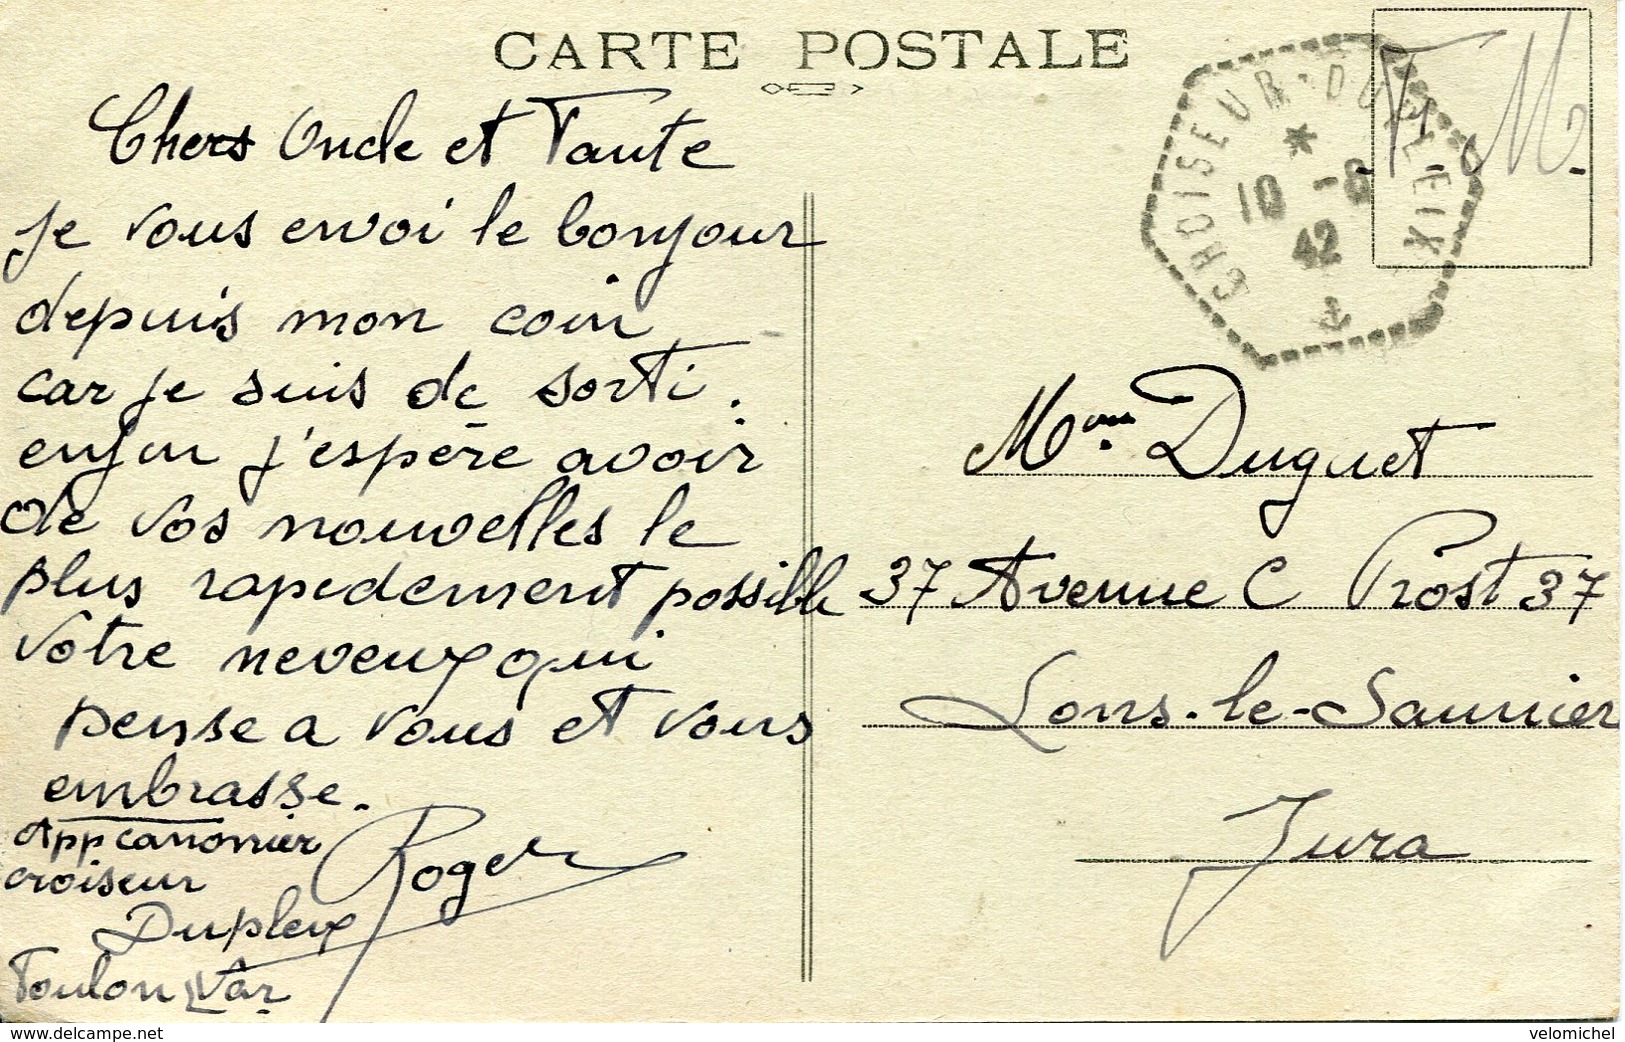 CARTE POSTALE
Chers Oncle et Tante
je vous envoi le bonjour
depuis mon coin
car je suis de sorti.
enfin j'espère avoir
de vos nouvelles le
plus rapidement possible
votre neveux qui
pense a vous et vous
embrasse.
App canonnier
croiseur
Dupleix
Toulon Var
Roger
F. M.
CROISEUR · DUPLEIX
10 -8
42
Mme Duguet
37 Avenue C Prost 37
Lons-le-Saunier
Jura
www.delcampe.net
velomichel